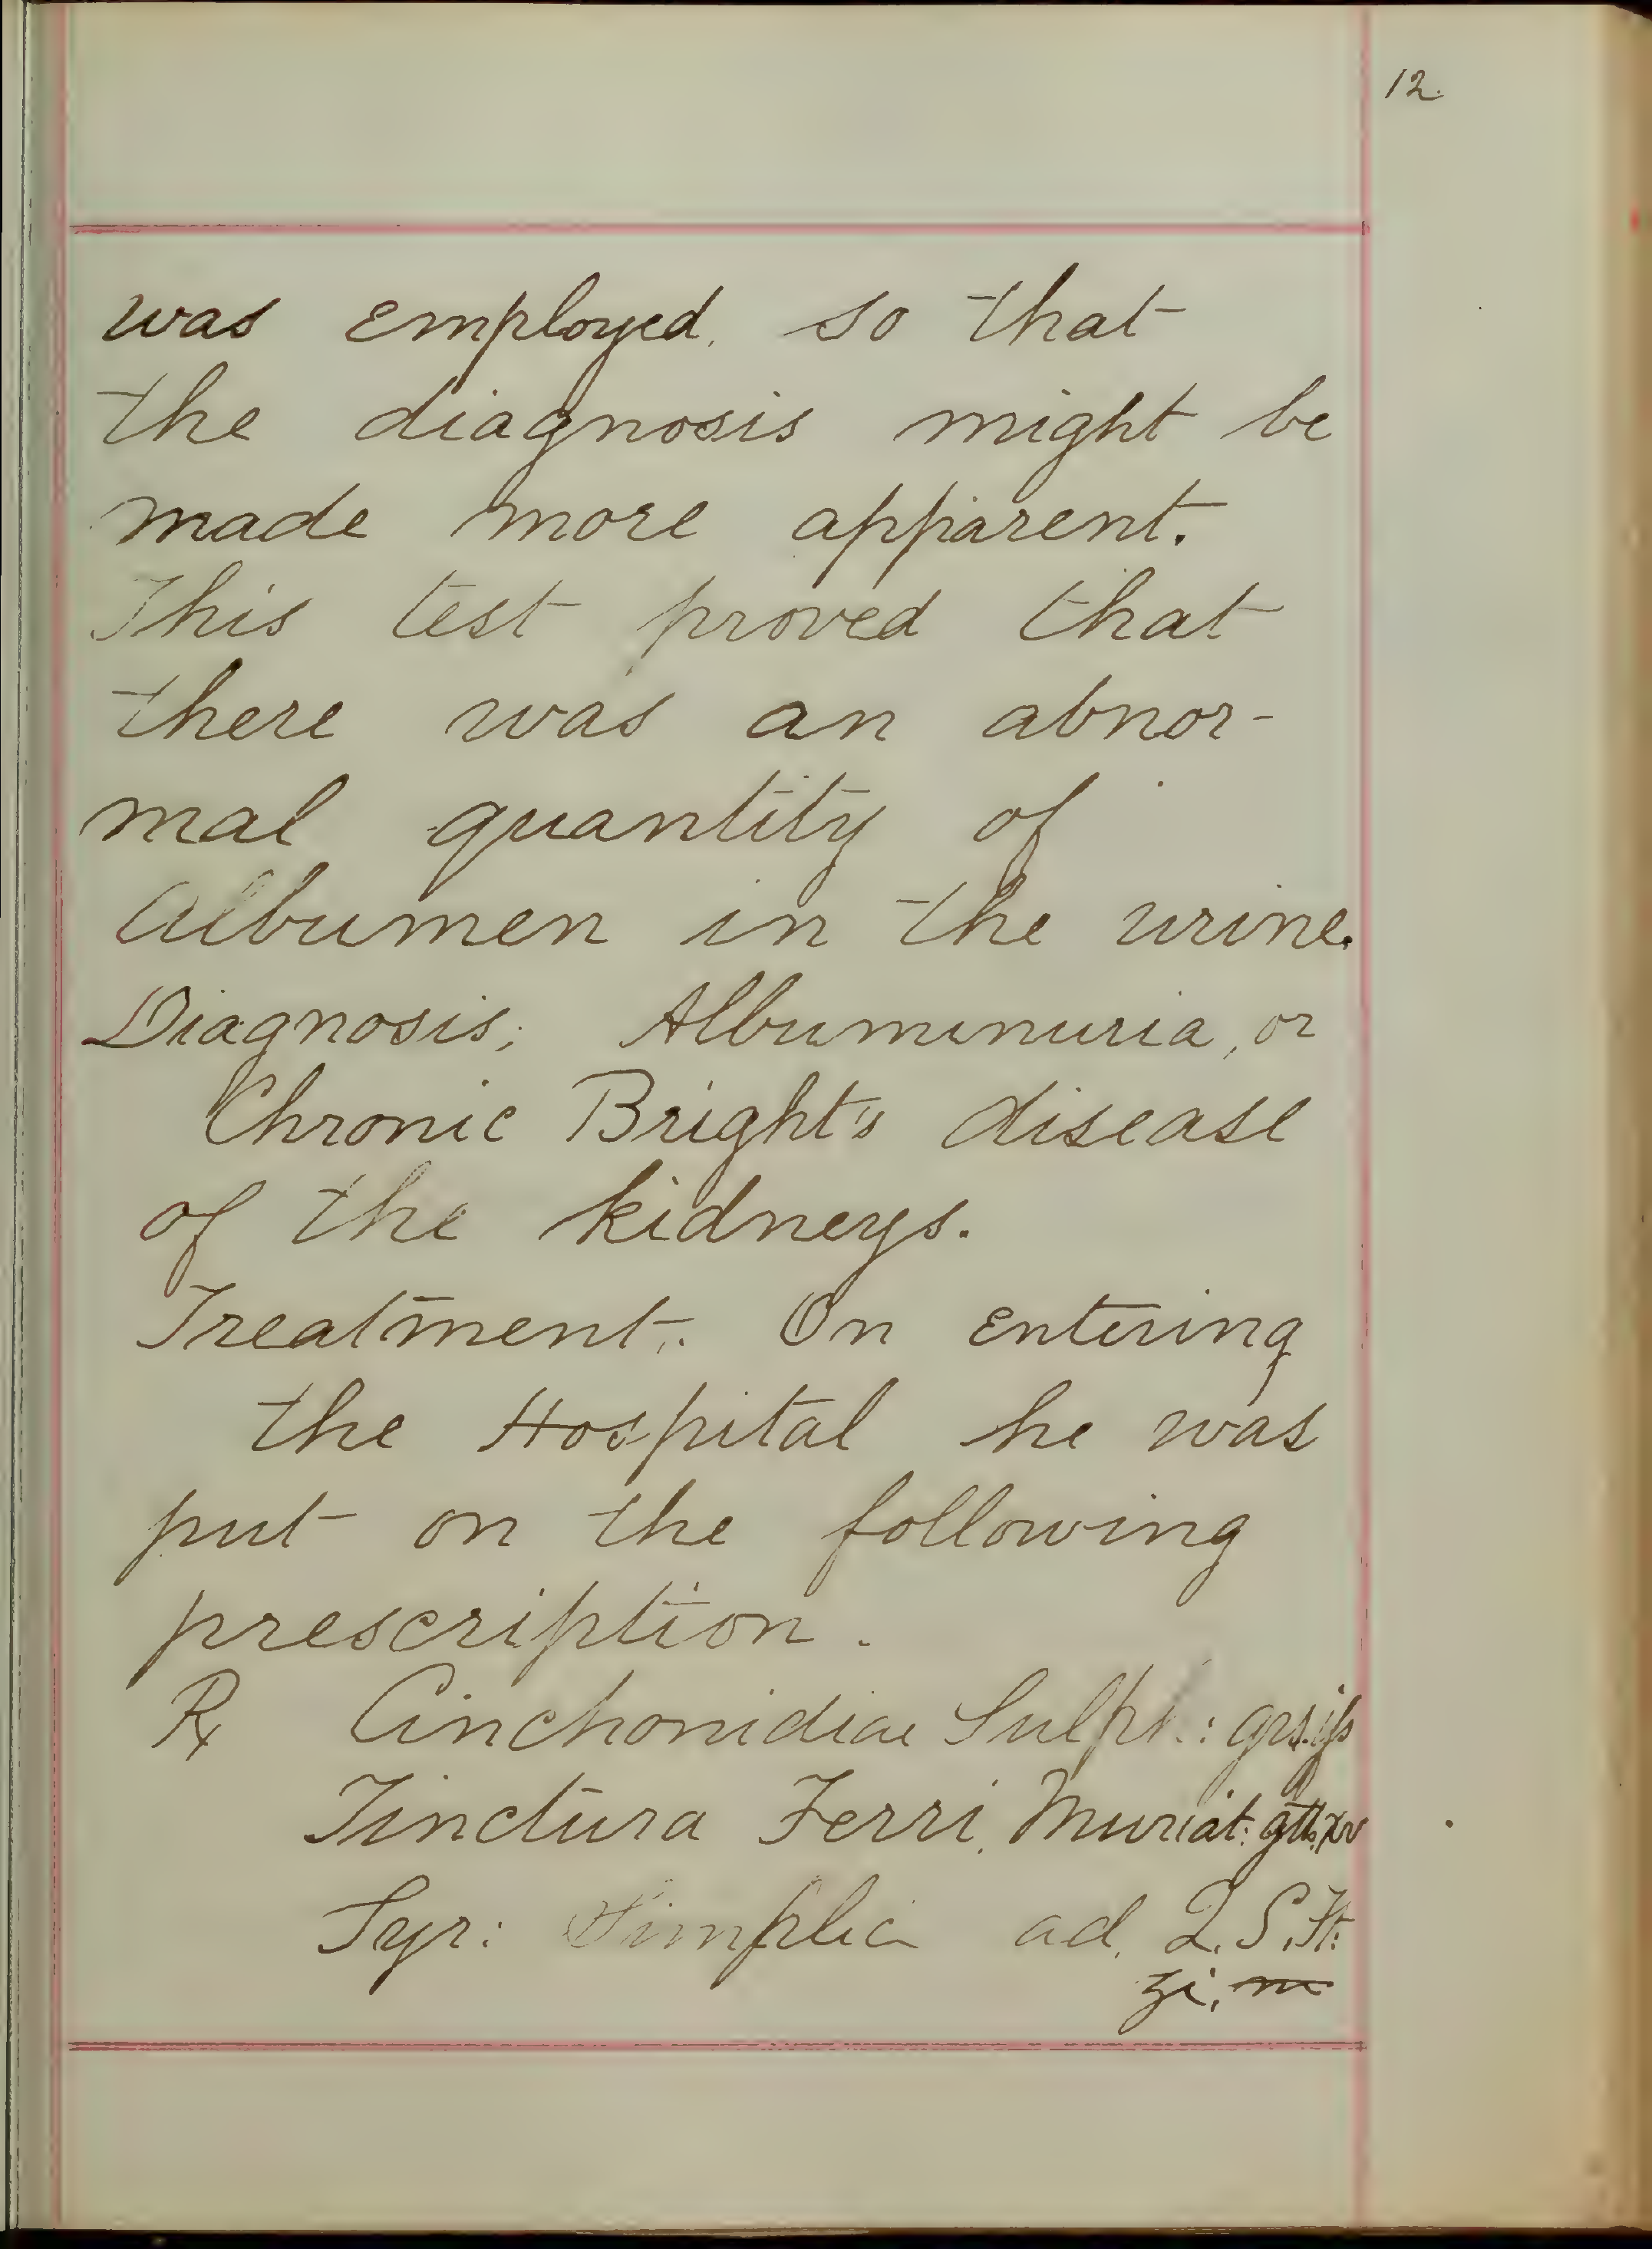 12.
was employed, so that
the diagnosis might be
made more apparent.
This test proved that
there was an abnor-
mal quantity of
Albumen in the urine.
Diagnosis; Albuminuria, or
Chronic Bright's disease
of the kidneys.
Treatment. On entering
the Hospital he was
put on the following
prescription.
℞ Cinchonidiae Sulph.: grs.ijſs
Tinctura Ferri, Muriat: gtts.xv
Syr: Simplic ad. Q.S.Ft.
ʒi, m